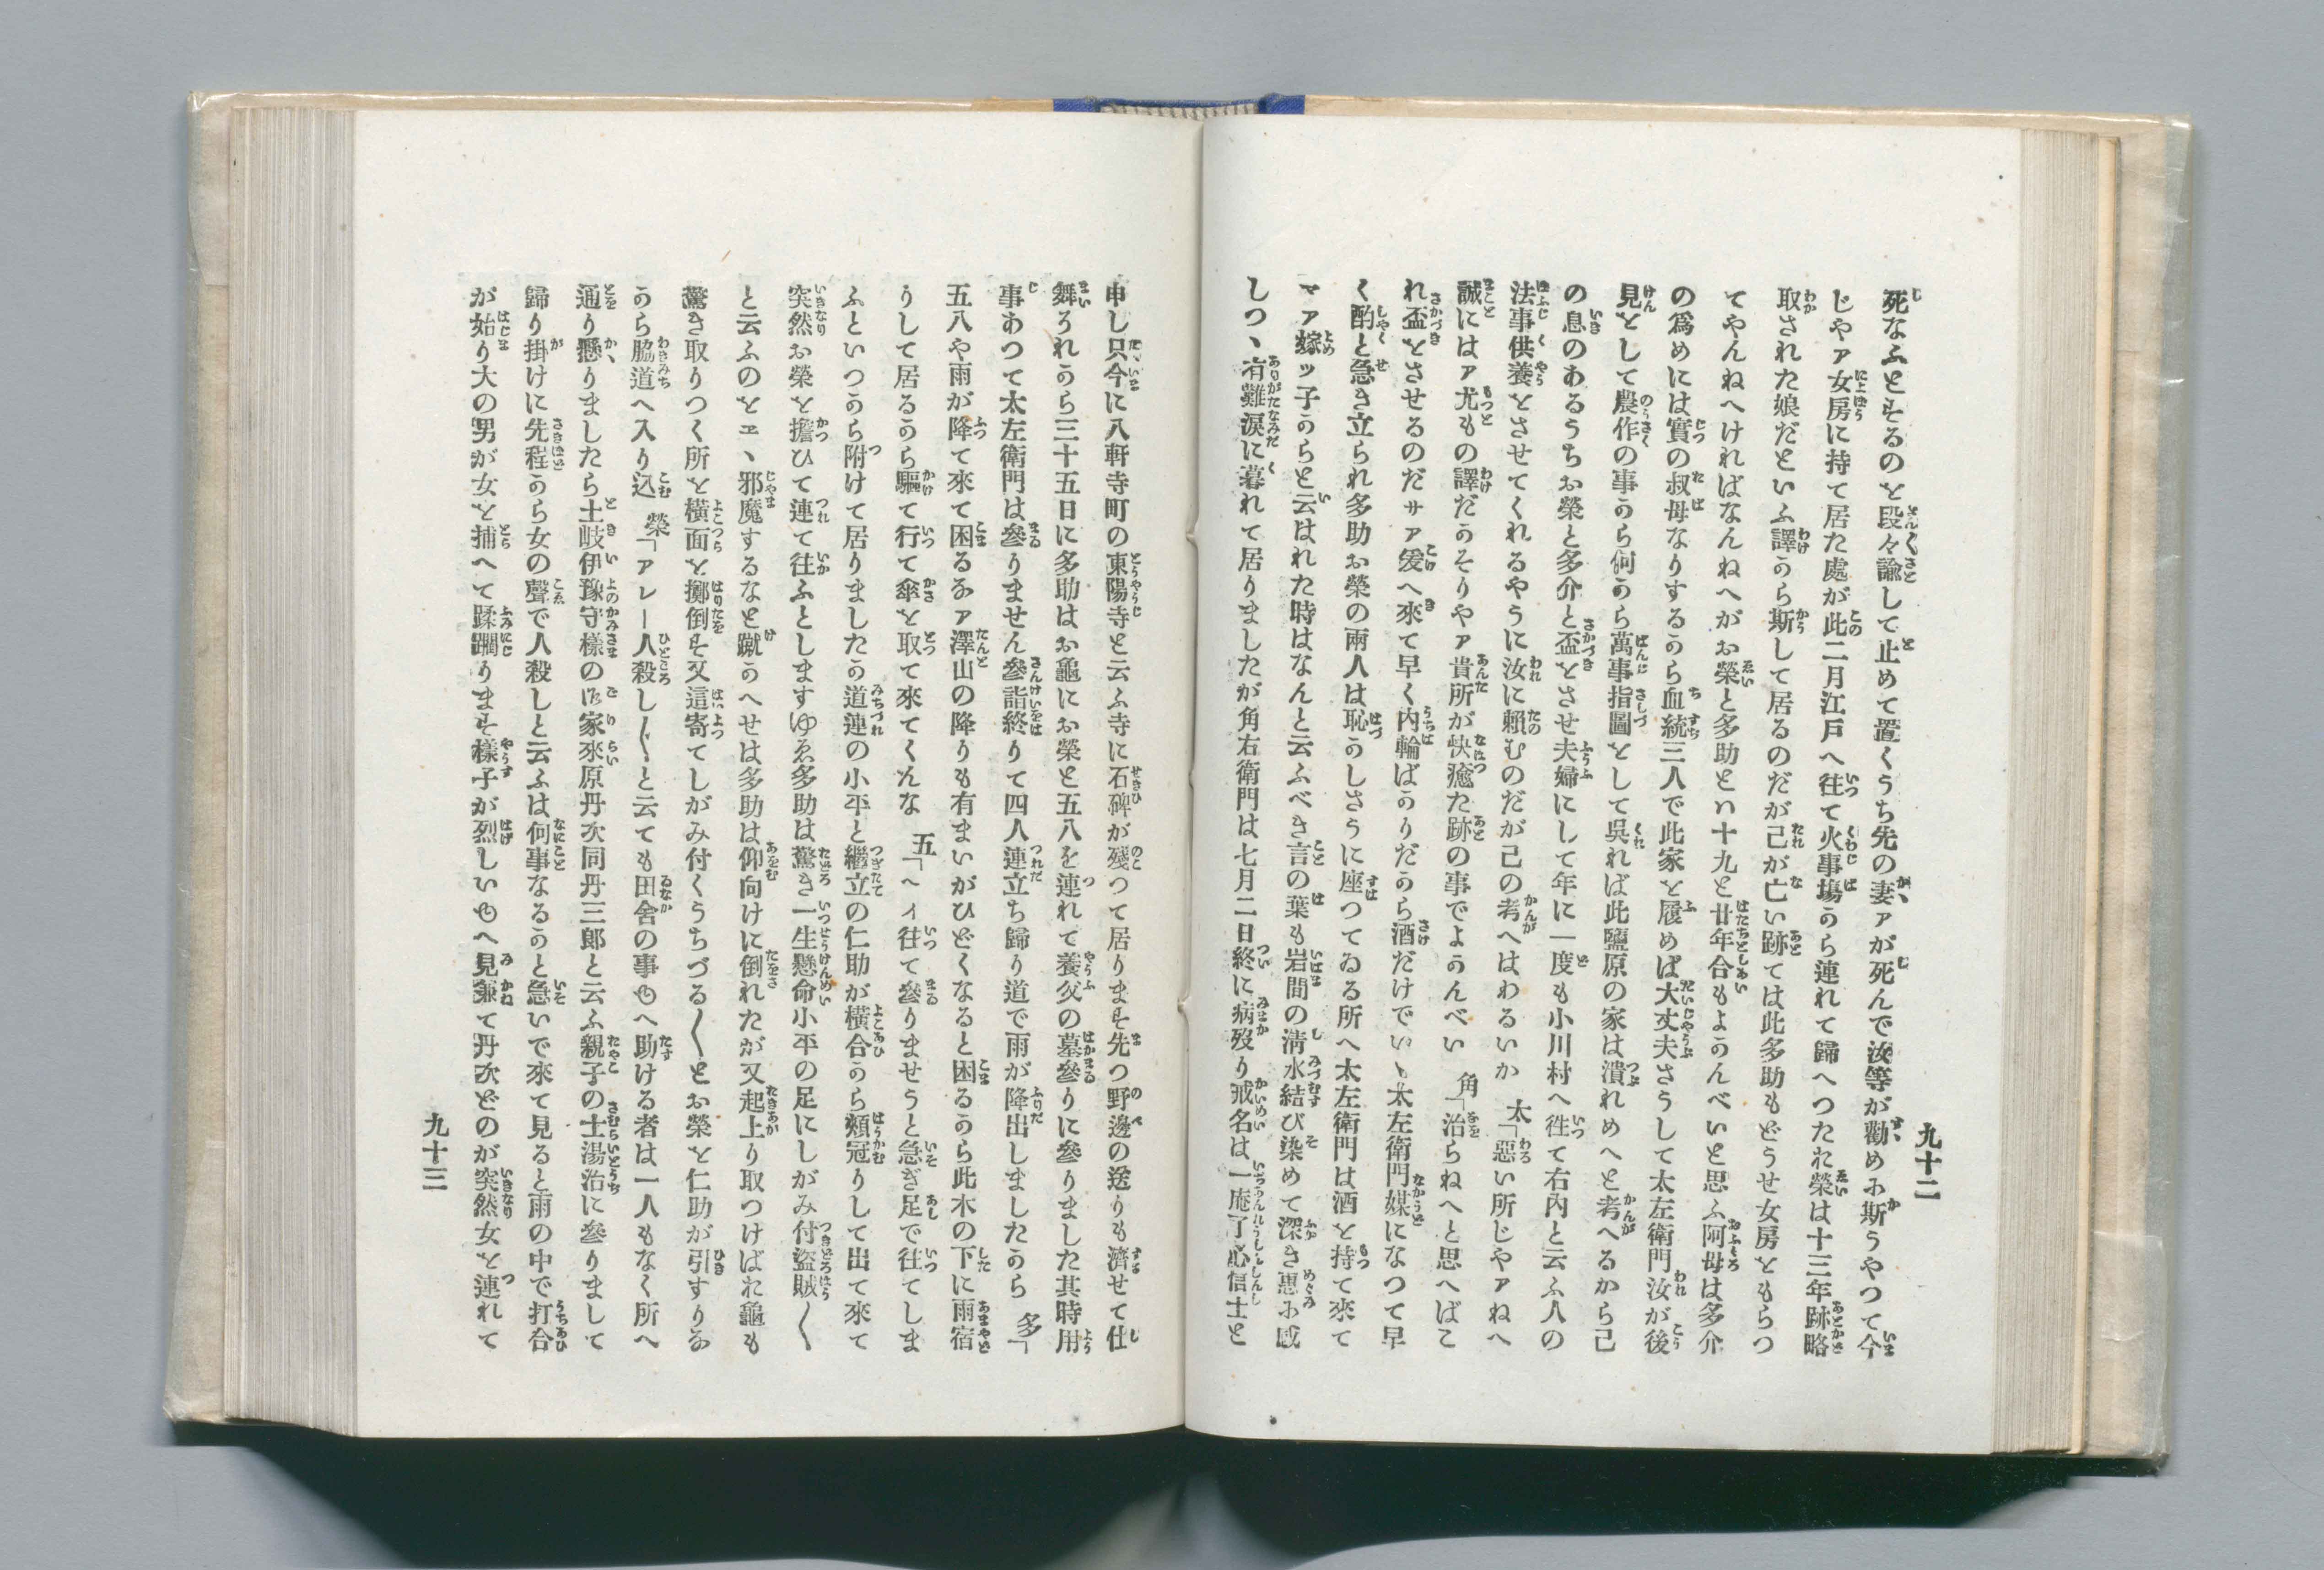 九十二
死なふとするのを段々諭して止めて置くうち先の妻アが死んで汝等が勸めに斯うやつて今
じやア女房に持て居た處が此二月江戸へ往て火事塲から連れて歸へつたお榮は十三年跡略
取された娘だといふ譯から斯して居るのだが己が亡い跡ては此多助もどうせ女房をもらつ
てやんねへければなんねへがお榮と多助とハ十九と廿年合もよかんべいと思ふ阿母は多介
の爲めには實の叔母なりするから血統三人で此家を履めば大丈夫さうして太左衛門汝が後
見をして農作の事から何から萬事指圖をして呉れば此鹽原の家は潰れめへと考へるから己
の息のあるうちお榮と多介と盃をさせ夫婦にして年に一度も小川村へ徃て右内と云ふ人の
法事供養をさせてくれるやうに汝に賴むのだが己の考へはわるいか　太「惡い所じやアねへ
誠にはア尤もの譯だかそりやア貴所が快癒た跡の事でよかんべい　角「治らねへと思へばこ
れ盃をさせるのだサア爰へ來て早く内輪ばかりだから酒だけでいゝ太左衛門媒になつて早
く酌と急き立られ多助お榮の兩人は恥かしさうに座つてゐる所へ太左衛門は酒を持て來て
マア嫁ッ子からと云はれた時はなんと云ふべき言の葉も岩間の清水結び染めて深き惠に感
しつゝ有難涙に暮れて居りましたが角右衛門は七月二日終に病歿り戒名は一庵了心信士と
申し只今に八軒寺町の東陽寺と云ふ寺に石碑が殘つて居ります先つ野邊の送りも濟せて仕
舞ろれから三十五日に多助はお龜にお榮と五八を連れて養父の墓參りに參りました其時用
事あつて太左衛門は參りません參詣終りて四人連立ち歸り道で雨が降出しましたから　多「
五八や雨が降て來て困るなア澤山の降りも有まいがひどくなると困るから此木の下に雨宿
りして居るから驅て行て傘を取て來てくんな　五「ヘイ往て參りませうと急ぎ足で往てしま
ふといつから附けて居りましたか道連の小平と繼立の仁助が横合から頬冠りして出て來て
突然お榮を擔ひて連て往ふとしますゆゑ多助は驚き一生懸命小平の足にしがみ付盜賊〱
と云ふのをエヽ邪魔するなと蹴かへせは多助は仰向けに倒れたが又起上り取つけばお龜も
驚き取りつく所を横面を擲倒す又這寄てしがみ付くうちづる〱とお榮を仁助が引すりな
から脇道へ入り込　榮「アレー人殺し〱と云ても田舍の事ゆへ助ける者は一人もなく所へ
通り懸りましたら土岐伊豫守樣の御家來原丹次同丹三郎と云ふ親子の士湯治に參りまして
歸り掛けに先程から女の聲で人殺しと云ふは何事なるかと急いで來て見ると雨の中で打合
が始り大の男が女を捕へて蹂躙ります樣子が烈しいゆへ見兼て丹次どのが突然女を連れて
九十三